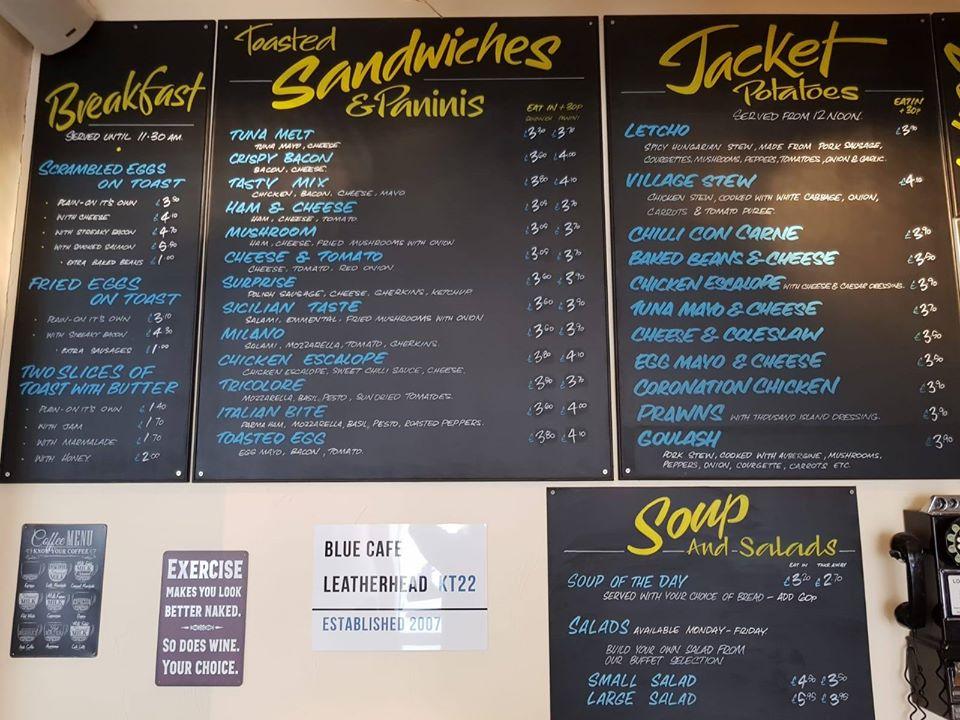 Breakfast
SERVED UNTIL 11.30 AM.
SCRAMBLED EGGS
ON TOAST
• PLAIN-ON IT'S OWN
• WITH CHEESE £4.10
• WITH STREAKY BACON £4.70
• WITH SMOKED SALMON
• EXTRA BAKED BEANS £1.00
FRIED EGGS
ON TOAST
• PLAIN-ON IT'S OWN £3.10
• WITH STREAKY BACON
• EXTRA SAUSAGES £1.00
TWO SLICES OF
TOAST WITH BUTTER
• PLAIN-ON IT'S OWN £1.40
• WITH JAM £1.70
• WITH MARMALADE £1.70
• WITH HONEY £2.00
Toasted
Sandwiches
& Paninis
EAT IN +30P
SANDWICH PANINI
TUNA MELT
TUNA MAYO, CHEESE
CRISPY BACON £3.60 £4.00
BACON, CHEESE.
TASTY MIX £3.80 £4.10
CHICKEN, BACON, CHEESE, MAYO
HAM & CHEESE
HAM, CHEESE, TOMATO.
MUSHROOM
HAM, CHEESE, FRIED MUSHROOMS WITH ONION
CHEESE & TOMATO
CHEESE, TOMATO, RED ONION.
SURPRISE £3.60 £3.90
POLISH SAUSAGE, CHEESE, GHERKINS, KETCHUP
SICILIAN TASTE £3.60 £3.90
SALAMI, EMMENTAL, FRIED MUSHROOMS WITH ONION
MILANO £3.60 £3.90
SALAMI, MOZZARELLA, TOMATO, GHERKINS.
CHICKEN ESCALOPE £3.80 £4.10
CHICKEN ESCALOPE, SWEET CHILLI SAUCE, CHEESE.
TRICOLORE
MOZZARELLA, BASIL, PESTO, SUN DRIED TOMATOES.
ITALIAN BITE £3.60 £4.00
PARMA HAM, MOZZARELLA, BASIL, PESTO, ROASTED PEPPERS.
TOASTED EGG £3.80 £4.10
EGG MAYO, BACON, TOMATO.
Jacket
Potatoes
SERVED FROM 12 NOON.
EAT IN
+30P
LETCHO £3.90
SPICY HUNGARIAN STEW, MADE FROM PORK SAUSAGE,
COURGETTES, MUSHROOMS, PEPPERS, TOMATOES, ONION & GARLIC.
VILLAGE STEW £4.10
CHICKEN STEW, COOKED WITH WHITE CABBAGE, ONION,
CARROTS & TOMATO PUREE.
CHILLI CON CARNE £3.90
BAKED BEANS & CHEESE
CHICKEN ESCALOPE WITH CHEESE & CAESAR DRESSING. £3.90
TUNA MAYO & CHEESE £3.70
CHEESE & COLESLAW
EGG MAYO & CHEESE
CORONATION CHICKEN £3.90
PRAWNS WITH THOUSAND ISLAND DRESSING. £3.90
GOULASH £3.90
PORK STEW, COOKED WITH AUBERGINE, MUSHROOMS,
PEPPERS, ONION, COURGETTE, CARROTS ETC.
Soup
And Salads
EAT IN TAKE AWAY
SOUP OF THE DAY £3.20 £2.70
SERVED WITH YOUR CHOICE OF BREAD - ADD 60P
SALADS AVAILABLE MONDAY-FRIDAY.
BUILD YOUR OWN SALAD FROM
OUR BUFFET SELECTION
SMALL SALAD
LARGE SALAD £5.95 £3.95
Coffee MENU
KNOW YOUR COFFEE
EXERCISE
MAKES YOU LOOK
BETTER NAKED.
SO DOES WINE.
YOUR CHOICE.
BLUE CAFE
LEATHERHEAD KT22
ESTABLISHED 2007